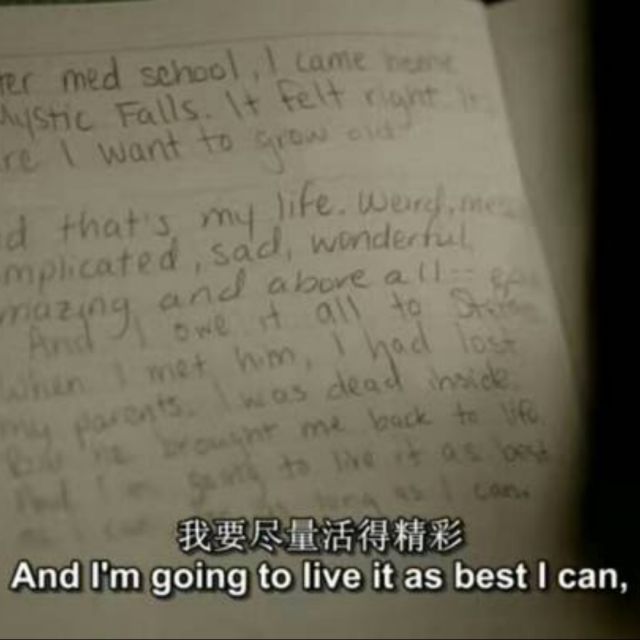 ter med school, I came home
Mystic Falls. It felt right. It
re I want to grow old
d that's my life. Weird, mes
mplicated, sad, wonderful,
mazing, and above all-- ep
And I owe it all to Stefan
When I met him, I had lost
my parents. I was dead inside.
But he brought me back to life.
And I'm going to live it as best
as I can as long as I can.
我要尽量活得精彩
And I'm going to live it as best I can,